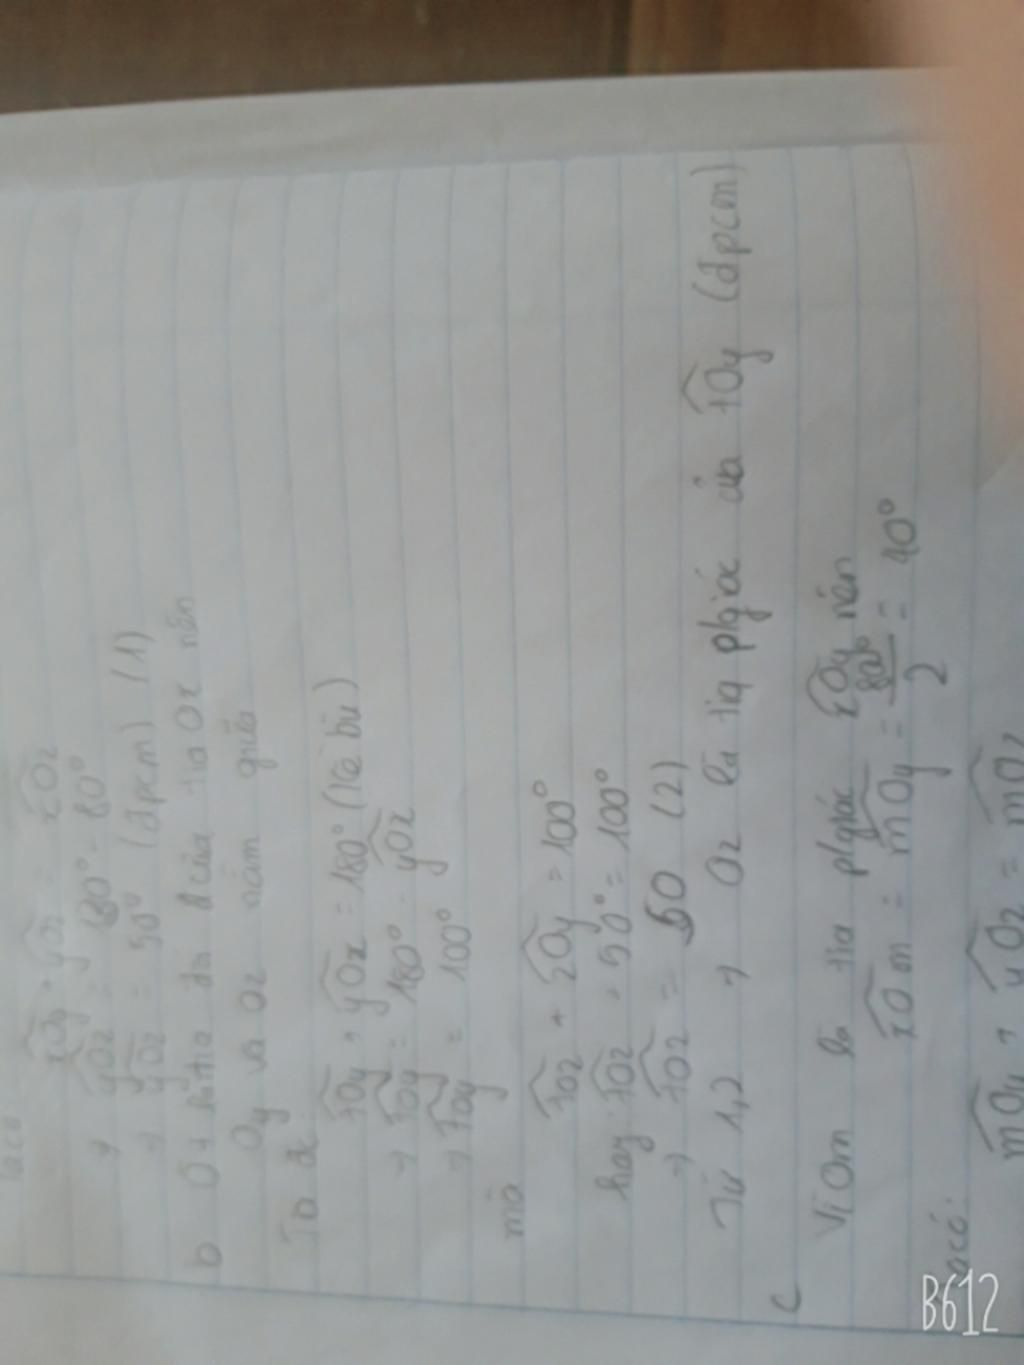 Ta có
xOy + yOz = xOz
→ yOz = 130° - 80°
→ yOz = 50° (đpcm) (1)
b Ot là tia đối của tia Ox nên
Oy và Oz nằm giữa
Ta có
tOy + yOx = 180° (kề bù)
→ tOy = 180° - yOx
→ tOy = 100°
mà
tOz + zOy = 100°
hay tOz + 50° = 100°
→ tOz = 50 (2)
Từ 1,2 → Oz là tia p/giác của tOy (đpcm)
c
Vì Om là tia p/giác xOy nên
xOm = mOy = 80°/2 = 40°
Ta có:
mOy + yOz = mOz
B612